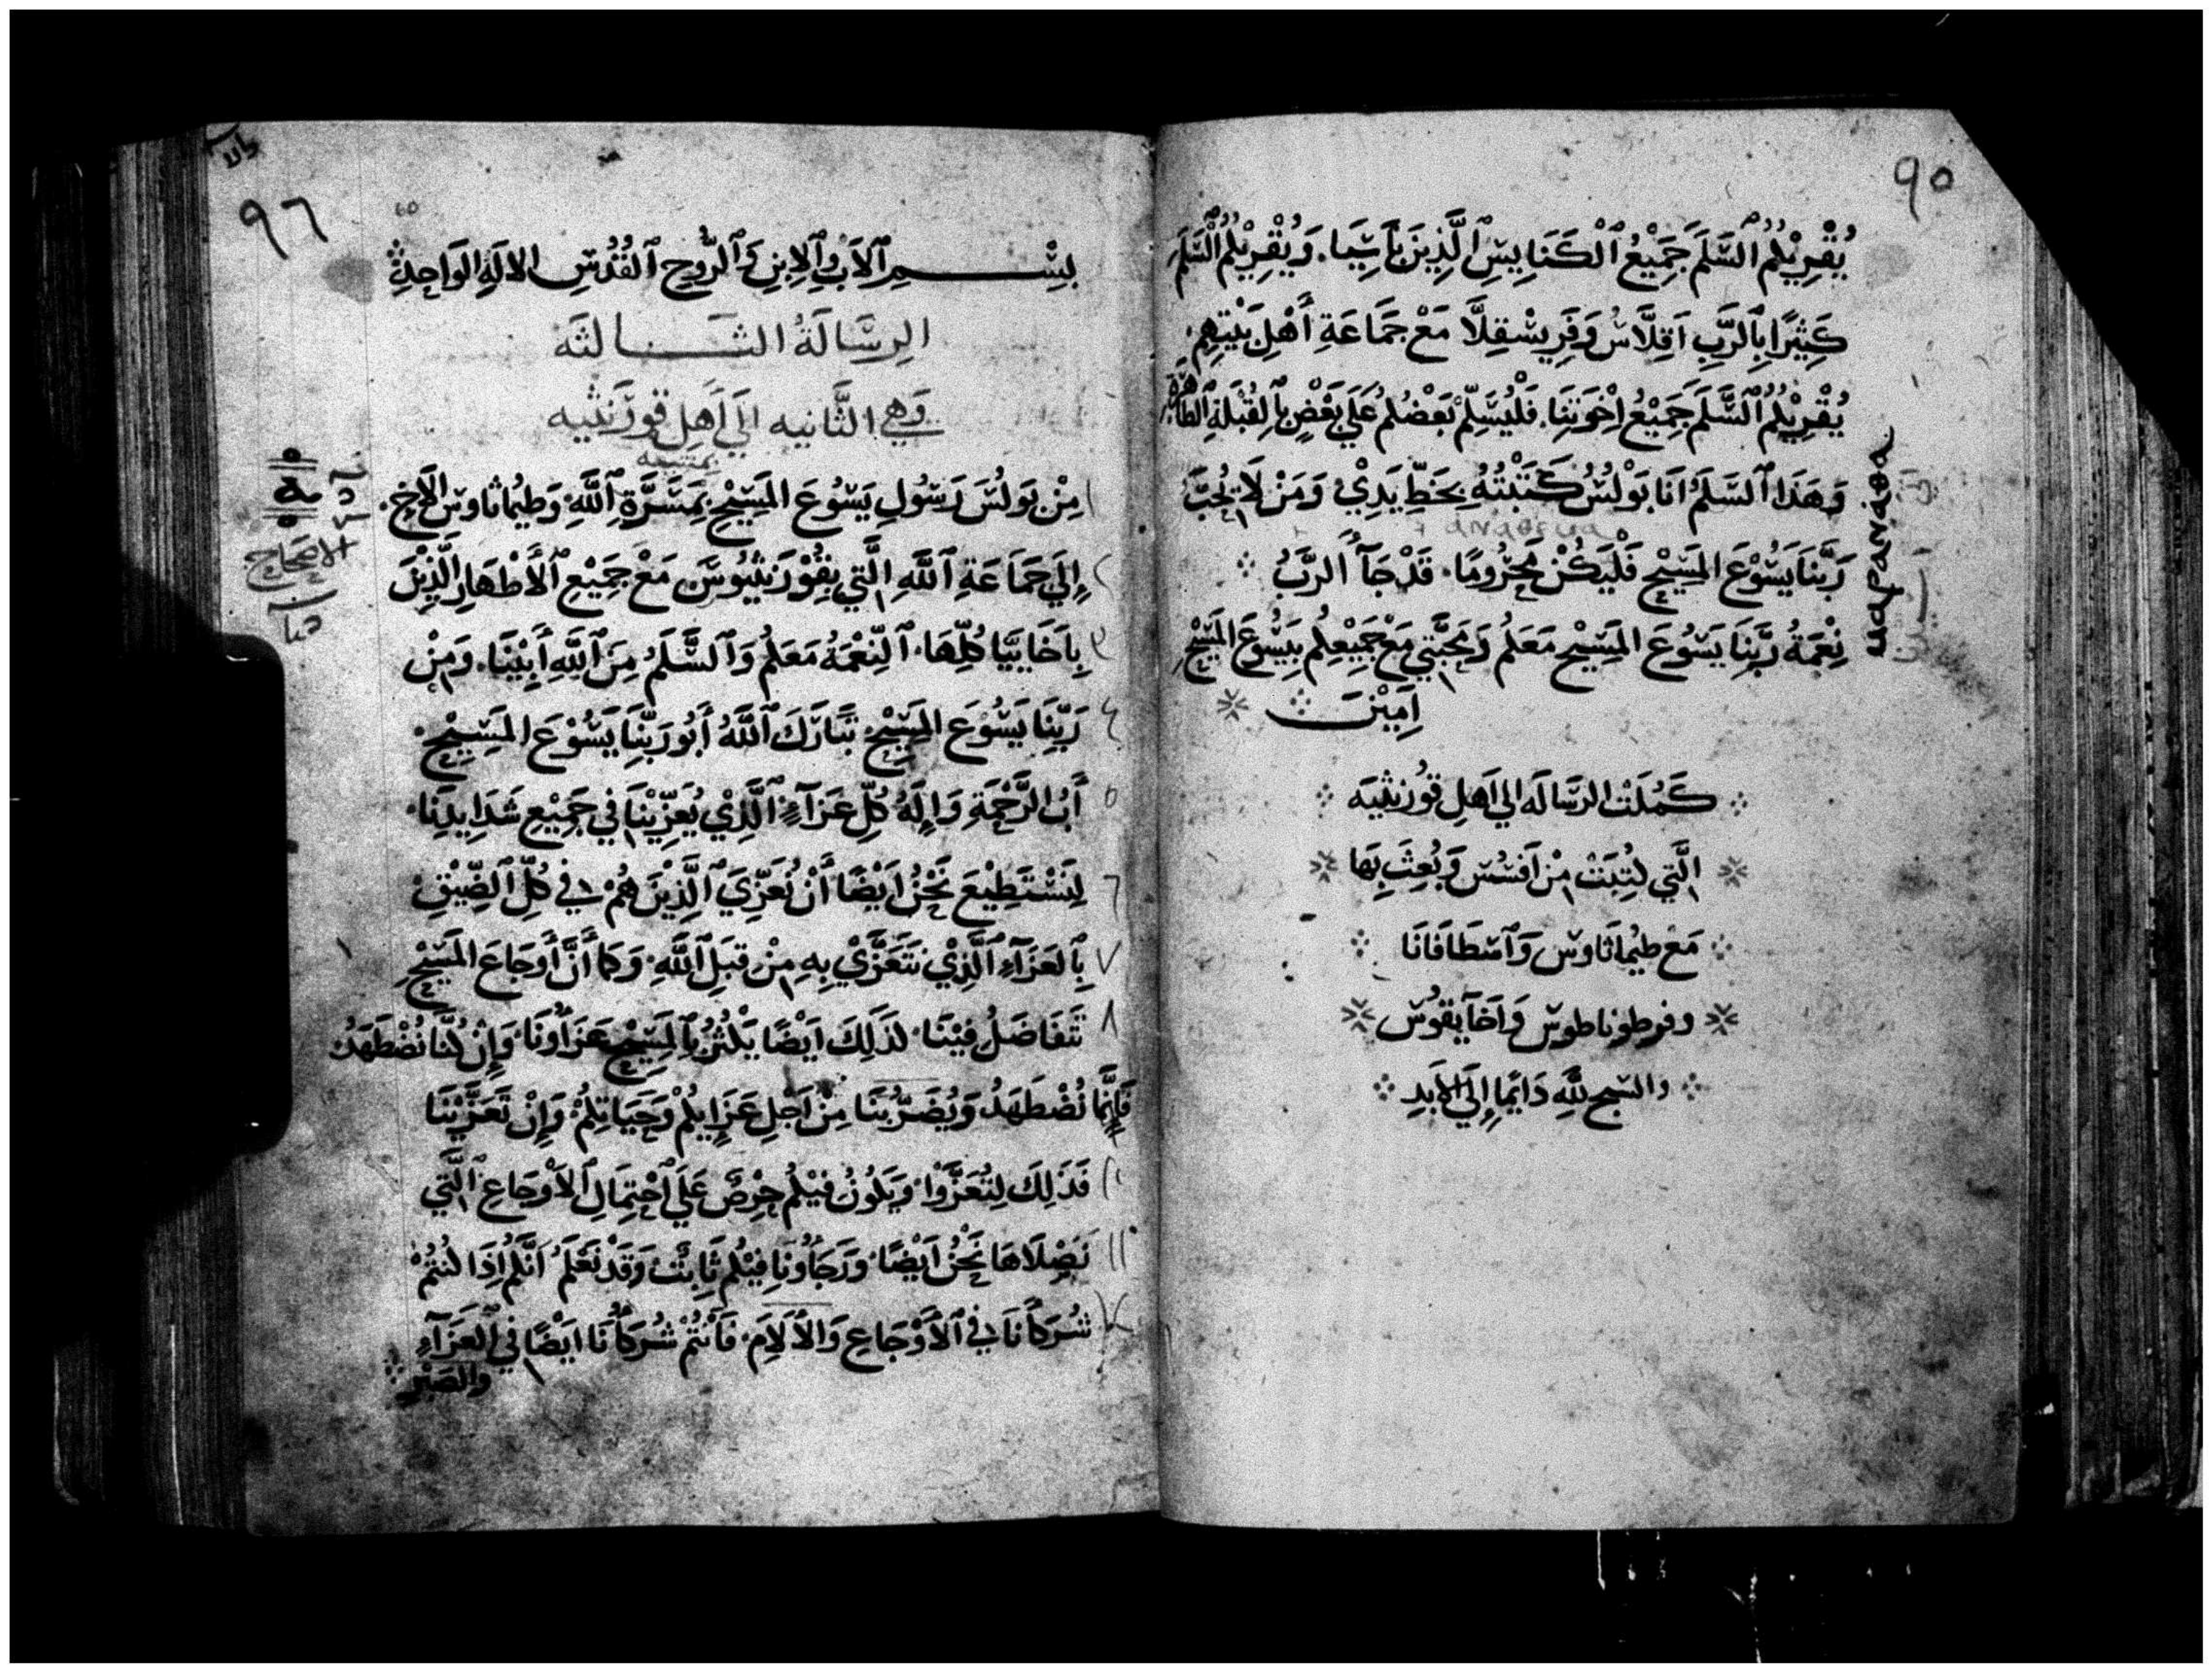 ٩٥
يُقْرِيْكُمُ ٱلسَّلَمَ جَمِيْعُ ٱلْكَنَايِسِ ٱلَّذِينَ بَأَسِيَا. وَيُقْرِيْكُمُ ٱلْسَّلَمَ
كَثِيْرًا بِٱلرَّبِ اَقِلَّاسُ وَفَرِيسْقِلَّا مَعْ جَمَاعَةِ أَهْلِ بَيْتِهِمِ.
يُقْرِيْكُمُ ٱلسَّلَمَ جَمِيْعُ اِخْوَتِنَا. فَلْيُسَلِّمْ بَعْضُكُمْ عَلَي بَعْضٍ بِٱلقُبْلَةِ ٱلطَاهِرَة
وَهَذَا ٱلسَّلَمُ اَنَا بَوْلُسُ كَتَبْتُهُ بِخَطِّ يَدِيْ وَمَنْ لَا يُحِبُّ
رَبَّنَا يَسُوْعَ المَسِيْحِ فَلْيَكُنْ مَحْرُومًا. قَدْ جَآءَ الرَّبُ
نِعْمَةُ رَبِّنَا يَسُوْعَ المَسِيْحِ مَعَكُمْ وَمَحَبَّتِي مَعْ جَمِيْعِكُمْ بِيَسُوعَ المَسِيْحِ
اَمِيْنَ
كَمُلَتْ الرسَّالَه الي اَهلِ قوُرنثِيَه
الَّتِي كُتِبَتْ مِنْ اَفَسُسْ وَبُعِثَ بِهَا
مَعْ طيُماثَاوسْ وَٱسْطَافَانَا
وفرطوناطوسْ وَاَخَآيِقُوسْ
والسَبح لِلَّهِ دَايمًا إِلَي الأَبَدِ
ⲙⲁⲣⲁⲛⲁⲑⲁ
٩٦
60
بِسْمِ ٱلاَبِ وَٱلاِبنِ وَٱلرُّوحِ ٱلقُدُسِ الالَهِ الوَاحِدِ
الرِسَالَةُ الثَالثَه
وَهي الثَّانيه الَي اَهلِ قورنثيه
بمشييه
١ مِنْ بَولُسَ رَسُولِ يَسُوْعَ المَسِيْحِ بِمَسَرَّةِ ٱللَّهِ. وَطيُماثاوسَ الأَخِ.
٢ إِلَي جَمَاعَةِ ٱللَّهِ الَّتِي بِقُوْرَنثِيُوسَ مَعْ جَمِيْعِ ٱلأَطْهَارِ الَّذِيْنَ
٣ بِاَخَايِيَّا كُلِّهَا. ٱلنِّعْمَةُ مَعَكُمْ وَٱلسَّلَمُ مِنَ ٱللَّهِ أَبِيْنَا. وَمِنْ
٤ رَبِّنَا يَسُوْعَ المَسِيْحِ تَبَارَكَ ٱللَّهُ أَبُو رَبِّنَا يَسُوْعَ المَسِيْحِ.
٥ أَبُ الرَّحْمَةِ وَإِلَهُ كُلِّ عَزَآءٍ ٱلَّذِي يُعَزِّيْنَا فِي جَمِيْعِ شَدَايِدِنَا.
٦ لِنَسْتَطِيْعَ نَحْنُ اَيْضًا أَنْ نُعَزِّيَ ٱلَّذِيْنَ هُمْ فِي كُلِّ ٱلضِّيْقِ.
٧ بِٱلعَزَآءِ ٱلَّذِيْ نَتَعَزَّيْ بِهِ مِنْ قِبَلِ ٱللَّهِ. وَكَمَا أَنَّ أَوجَاعَ المَسِيْحِ
٨ تَتَفَاضَلُ فِيْنَا. كَذَلِكَ اَيْضًا يَكْثُرُ بِٱلمَسِيْحِ عَزَاؤُنَا. وَإِنْ كُنَّا نُضْطَهَدُ
فَإِنَّمَا نُضْطَهَدُ وَيُضَرُّ بِنَا مِنْ اَجْلِ عَزَايِكُمْ وَحَيَاتِكُمْ. وَإِنْ تَعَزَّيْنَا
فَذَلِكَ لِتُعَزَّوْا. وَيَكُونُ فِيْكُمْ حِرْصٌ عَلَي ٱحْتِمَالِ ٱلأَوْجَاعِ ٱلَّتِي
١١ نَصْلَاهَا نَحْنُ اَيْضًا. وَرَجَاؤُنَا فِيْكُمْ ثَابِتٌ وَقَدْ نَعْلَمُ اَنَّكُمْ اِذَا كُنْتُمْ
١٢ شُرَكَأَنَا فِي ٱلأَوْجَاعِ وَالأَلَامِ. فَاَنْتُمْ شُرَكَأُنَا ايَضًا فِي ٱلعَزَآءِ
والصَبْرِ
الاصحاح